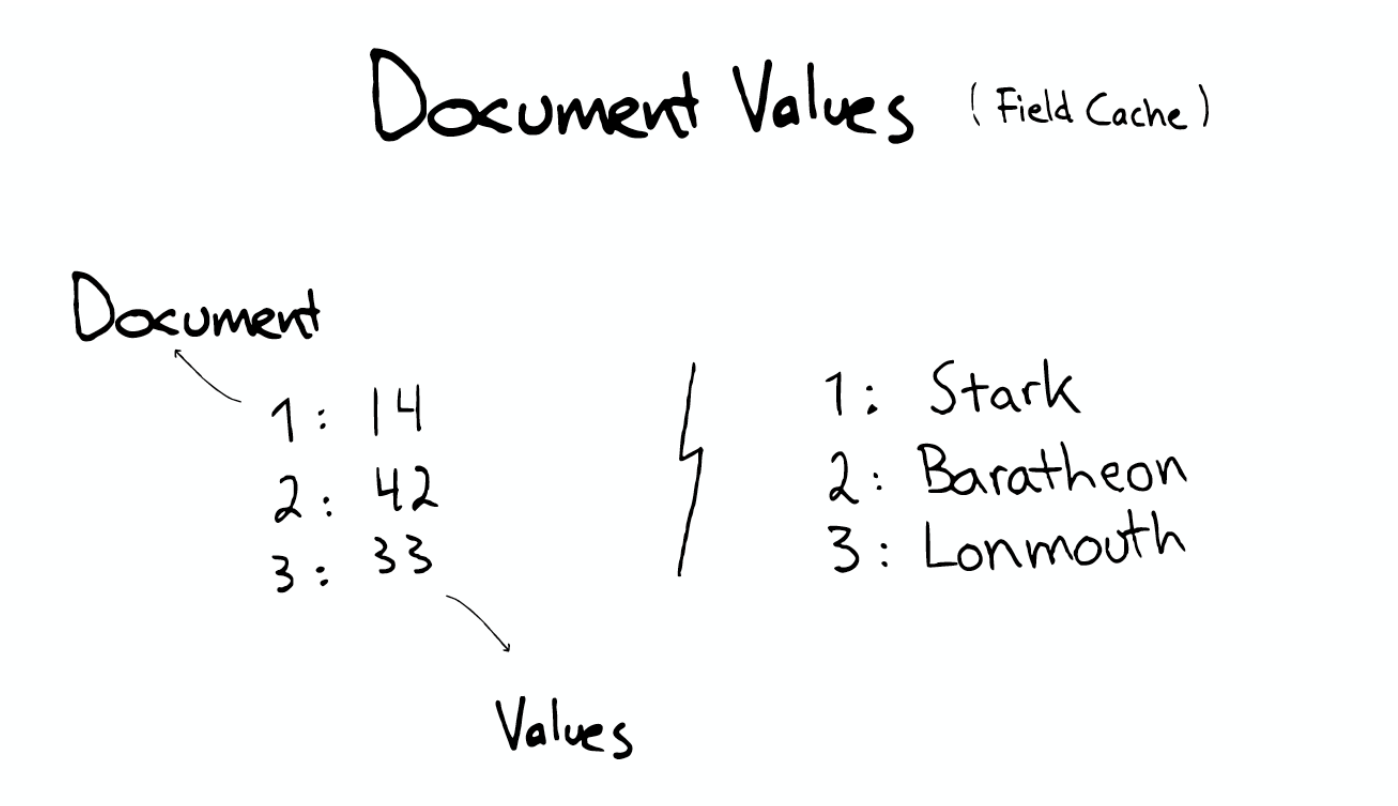 Document Values (Field Cache)
Document
1: 14
2: 42
3: 33
1: Stark
2: Baratheon
3: Lonmouth
Values